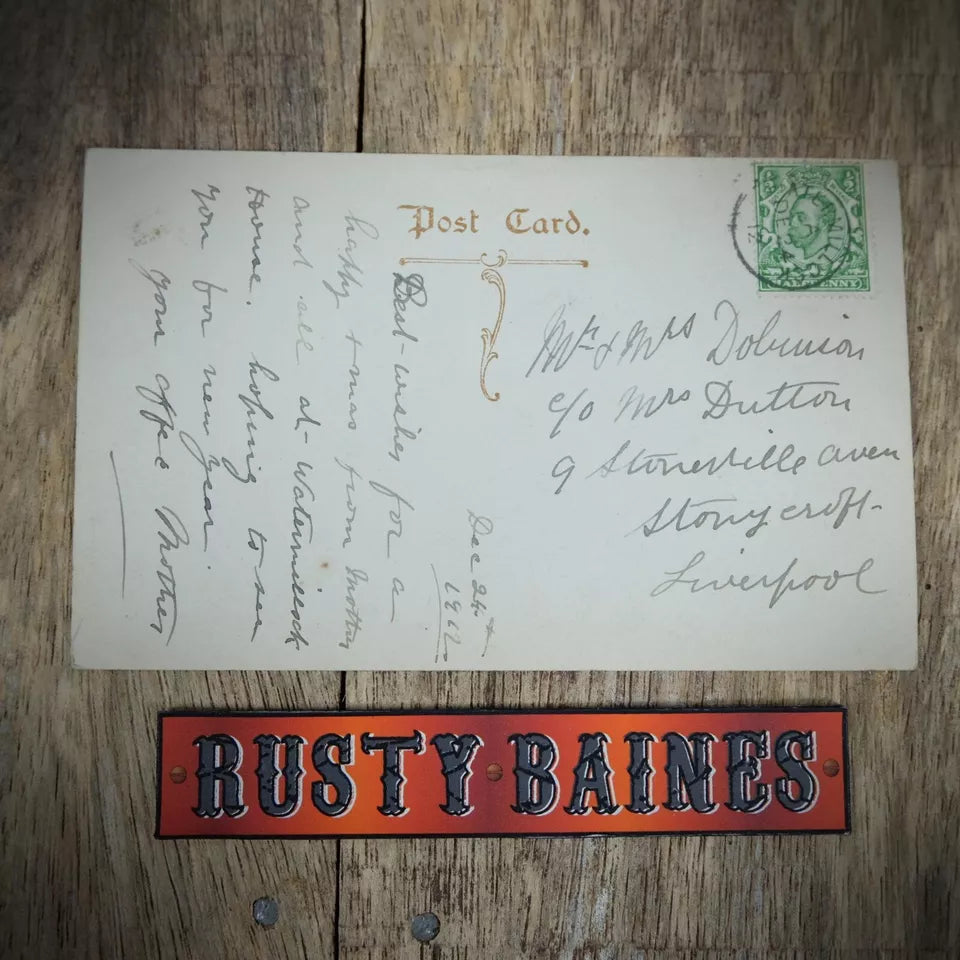 Post Card.
Dec 24th
1912
Best-wishes for a
happy xmas from Mother
and all at Watermillock
House. hoping to see
you for new year.
your affec Mother
HALFPENNY
Mr & Mrs Dobinson
c/o Mrs Dutton
9 Stoneville Aven
Stonycroft-
Liverpool
RUSTY BAINES